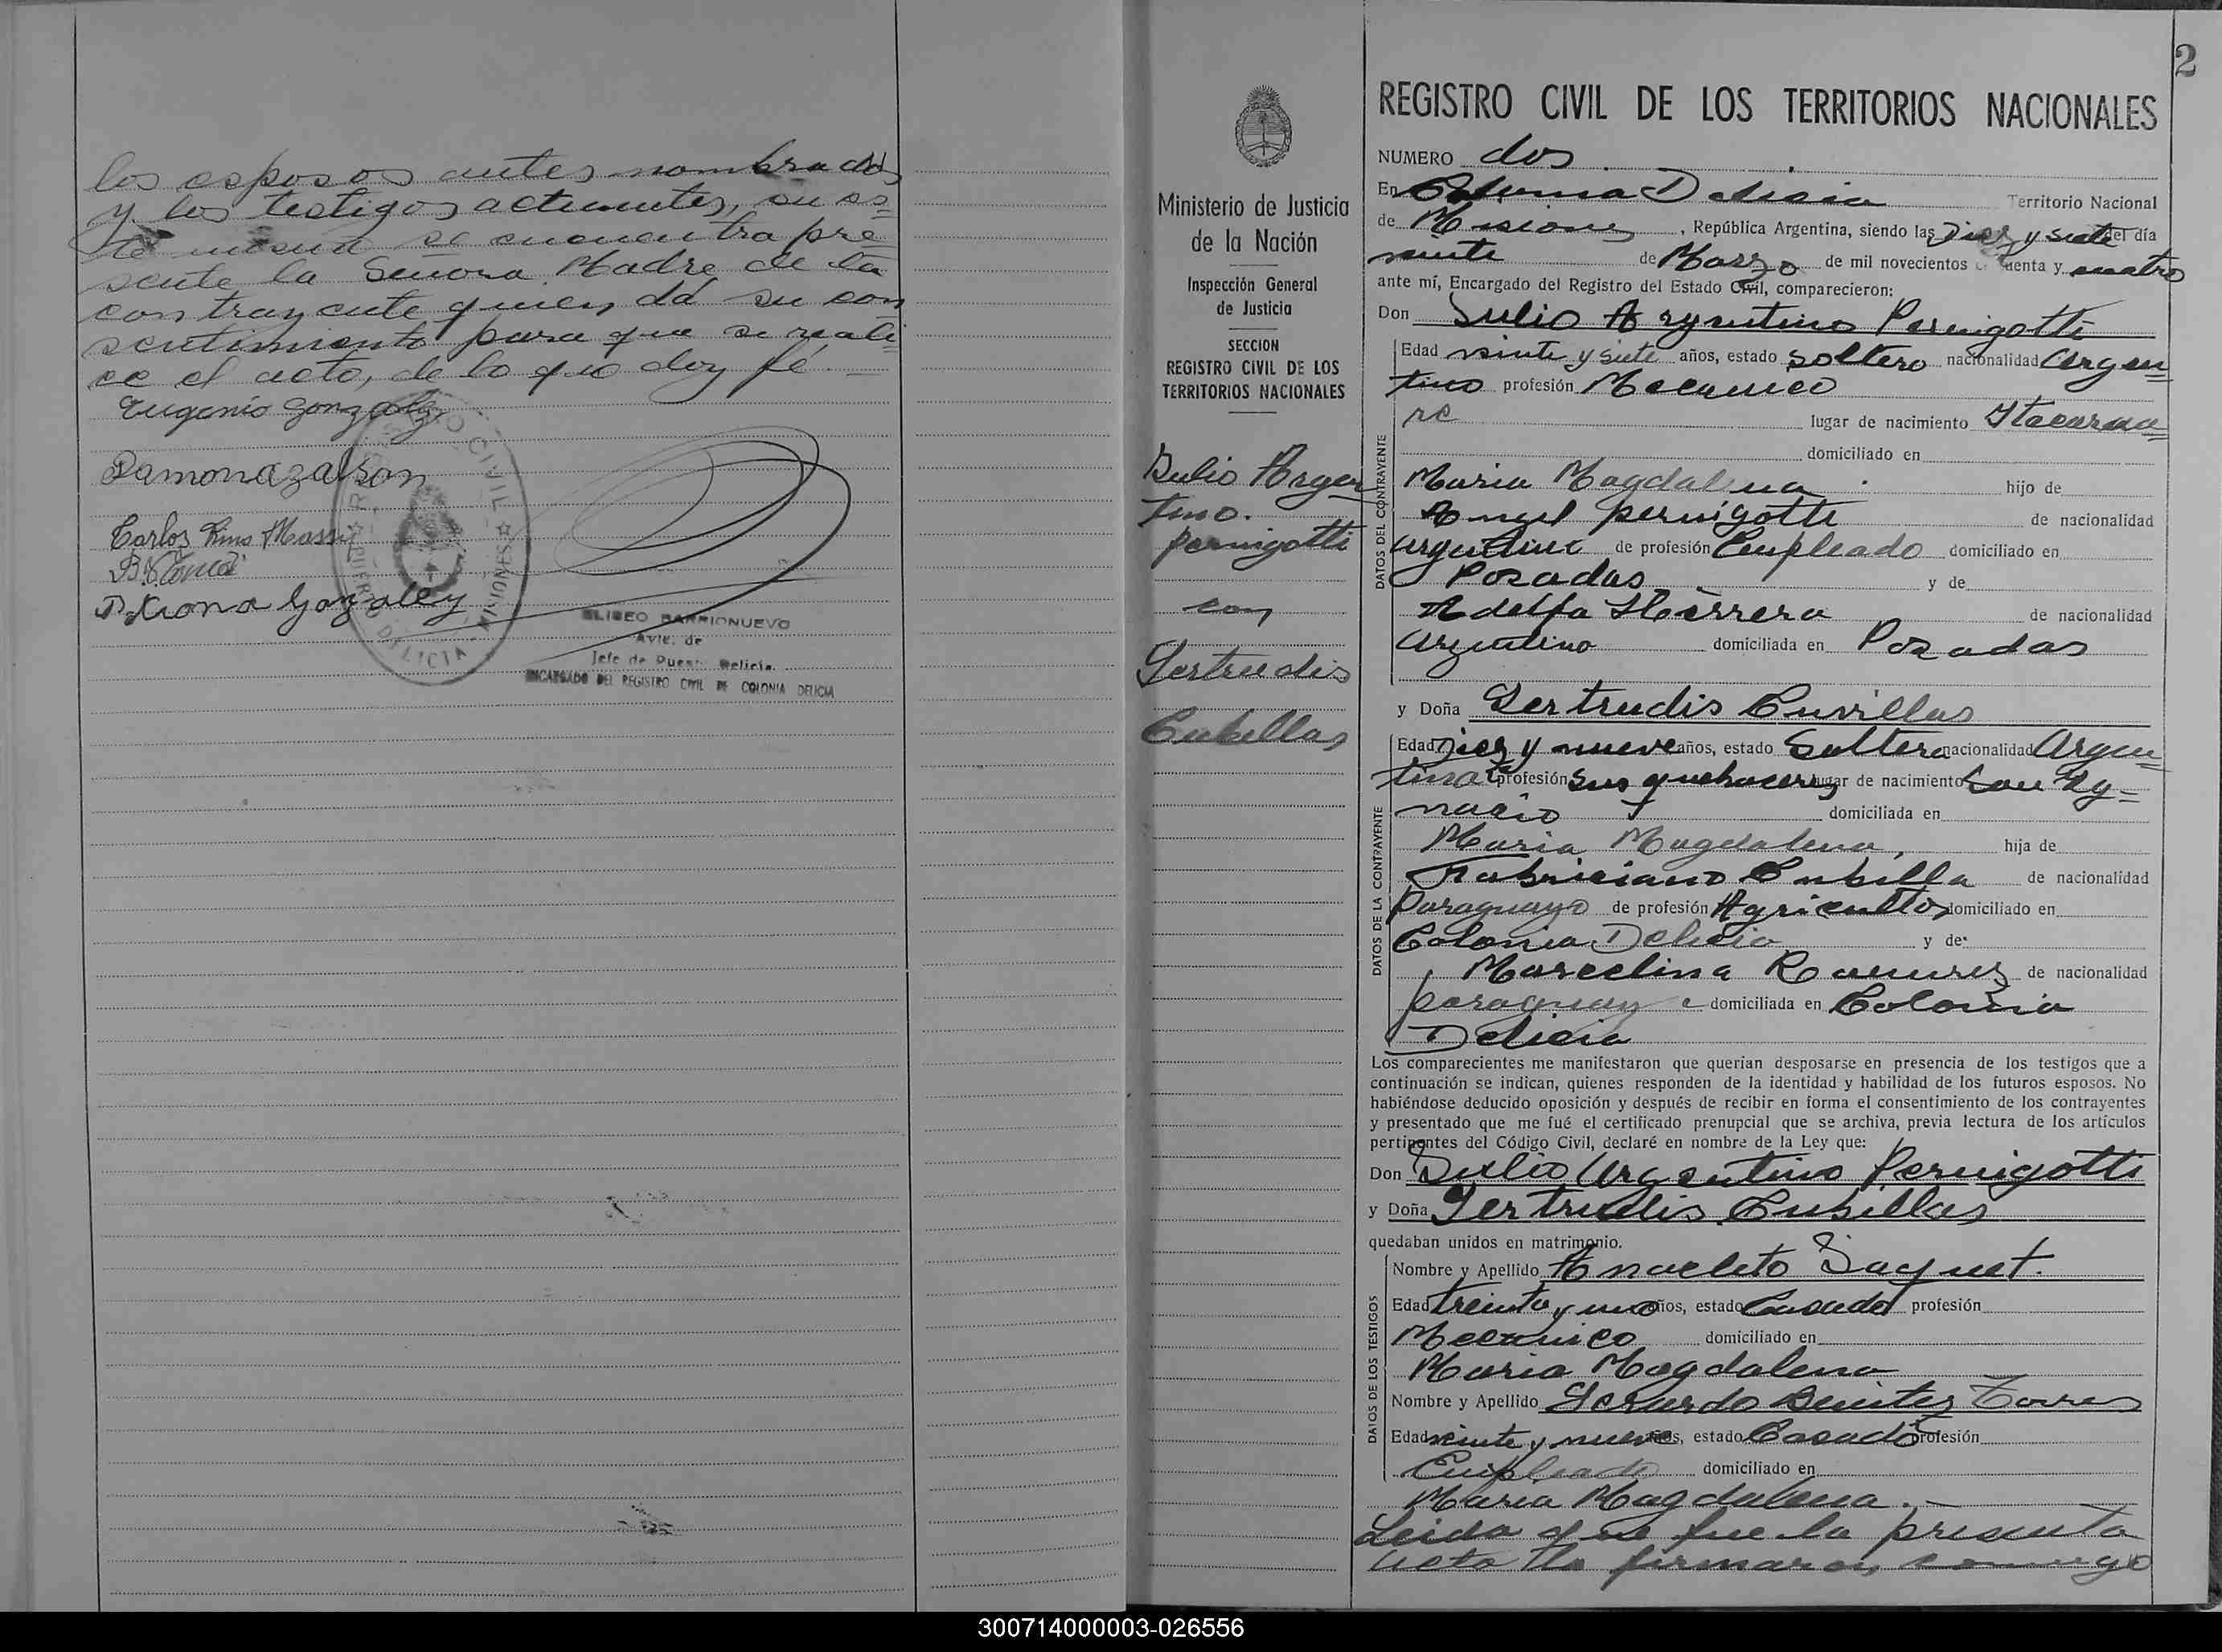 los esposos antes nombrados
y los testigos actuantes, en es=
te mismo se encuentra pre
sente la Señora Madre de la
contrayente quien dá su con
sentimiento para que se reali
ce el acto, de lo que doy fé.—
Eugenio Gonzalez
Ramona
Carlos Lino Massi
Gonzalez
REGISTRO CIVIL
MISIONES
DELICIA
ELISEO BARRIONUEVO
Jefe de Puesto Delicia
ENCARGADO DEL REGISTRO CIVIL DE COLONIA DELICIA
2
Ministerio de Justicia
de la Nación
Inspección General
de Justicia
SECCION
REGISTRO CIVIL DE LOS
TERRITORIOS NACIONALES
Julio Argen
tino.
Pernigotti
con
Gertrudis
Cubillas
REGISTRO CIVIL DE LOS TERRITORIOS NACIONALES
NUMERO dos
En Colonia Delicia Territorio Nacional
de Misiones, República Argentina, siendo las Diez y siete del día
veinte de Marzo de mil novecientos cuenta y cuatro
ante mí, Encargado del Registro del Estado Civil, comparecieron:
Don Julio Argentino Pernigotti
Edad veinte y siete años, estado soltero nacionalidad Argen=
tino profesión Mecanico
re lugar de nacimiento Itacarua=
domiciliado en
Maria Magdalena hijo de
Angel Pernigotti de nacionalidad
argentino de profesión Empleado domiciliado en
Posadas y de
Adelfa Herrera de nacionalidad
argentino domiciliada en Posadas
DATOS DEL CONTRAYENTE
y Doña Gertrudis Cuvillas
Edad Diez y nueve años, estado Soltera nacionalidad Argen=
tina profesión sus quehaceres lugar de nacimiento San Yg=
nacio domiciliada en
Maria Magdalena, hija de
Fabriciano Cubilla de nacionalidad
Paraguayo de profesión Agricultor domiciliado en
Colonia Delicia y de
Marcelina Ramirez de nacionalidad
paraguaya domiciliada en Colonia
Delicia
DATOS DE LA CONTRAYENTE
Los comparecientes me manifestaron que querían desposarse en presencia de los testigos que a
continuación se indican, quienes responden de la identidad y habilidad de los futuros esposos. No
habiéndose deducido oposición y después de recibir en forma el consentimiento de los contrayentes
y presentado que me fué el certificado prenupcial que se archiva, previa lectura de los artículos
pertinentes del Código Civil, declaré en nombre de la Ley que:
Don Julio Argentino Pernigotti
y Doña Gertrudis Cubillas
quedaban unidos en matrimonio.
Nombre y Apellido Anacleto Jaquet.
Edad treinta y uno años, estado Casado profesión
Mecanico domiciliado en
Maria Magdalena
Nombre y Apellido Gerardo Benitez Torres
Edad veinte y nueve años, estado Casado profesión
Empleado domiciliado en
Maria Magdalena.—
DATOS DE LOS TESTIGOS
Leida que fue la presente
acta la firmaron conmigo
300714000003-026556